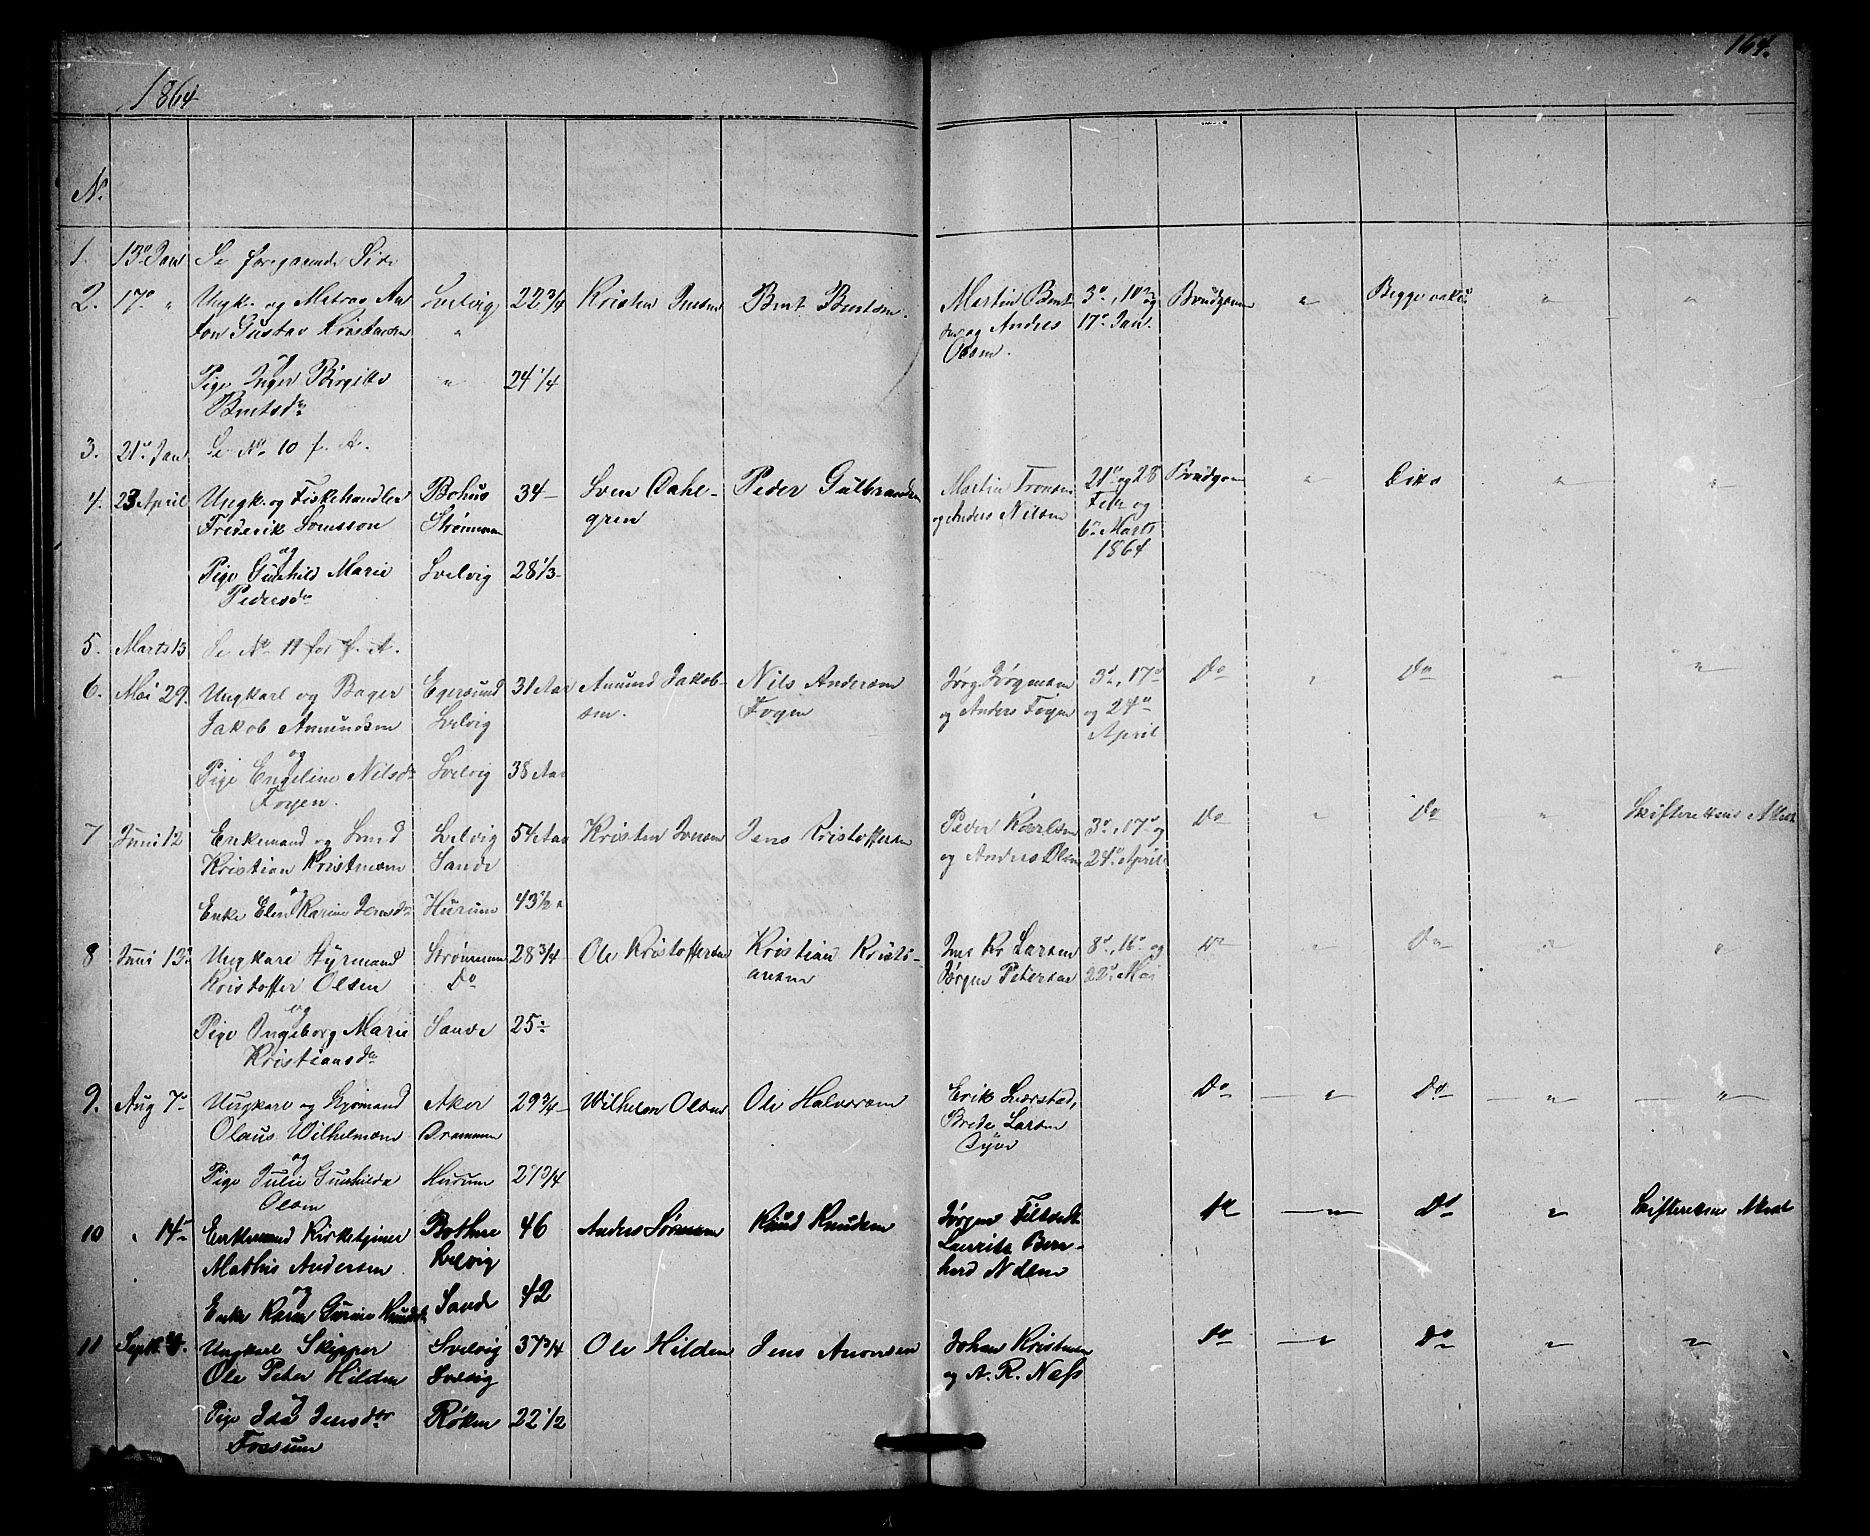 1864
164.
N.
1. 13de Jan Se foregaaende Side
2. 17de " Ungk. og Matros An Svelvig 22 3/4 Kristen Jensen Bent Bentsen. Martin Bent 3de, 10de og Brudgom " Begge vakc. " "
ton Gustav Kristensen " sen og Andres 17de Jan.
og Olsen.
Pige Inger Birgitte " 24 1/4
Bentsdr
3. 21de Jan Se No 10 f. A.
4. 23 April Ungk. og Fiskehandler Bohus 34 Sven Dahl- Peder Gulbrandsen Martin Tronsen 21de og 28 Brudgom " Dito " "
Frederik Svensson Strømmen gren og Anders Nilsen Feb og
og 6te Marts
Pige Gunhild Marie Svelvig 28 1/3 1864
Pedersdr
5. Marts 13 Se No 11 for f. A.
6. Mai 29. Ungkarl og Bager Egersund 31 Aar Amund Jakob- Nils Andersen Jørg. Jørgensen 3de, 17de Do " Do " "
Jakob Amundsen Svelvig sen. Foyen og Anders Foyen og 24de
og April
Pige Engeline Nilsdr Svelvig 38 Aar
Foyen.
7 Juni 12 Enkemand og Svelvig 54 Aar Kristen Jensen Jens Kristoffersen Peder Karlsen 3de, 17de og Do " Do " Skifterettens Attest
Kristian Kristensen Sande og Anders 24de April
og
Enke Elen Karine Jensdr Hurum 43 1/2 "
8 Juni 13de Ungkarl Styrmand Strømmen 28 3/4 Ole Kristoffersen Kristian Kristi- Jens Kr Larsen 8de, 16de og Do " Do " "
Kristoffer Olsen Do ansen Jørgen Petersen 22de Mai
og
Pige Ingeborg Marie Sande 25
Kristiansdr
9. Aug 7de Ungkarl og Sjømand Aker 29 3/4 Wilhelm Olsen Ole Halvorsen Erik Do " Do " "
Olaus Wilhelmsen Drammen Brede Larsen
og Dyve
Pige Julie Gunhilda Hurum 27 3/4
Olsen
10 " 14de Enkemand Kirketjener 46 Anders Sørensen Knud Knudsen Jørgen Do " Do " Skifterettens Attest
Mathis Andersen Svelvig Laurits Bern-
og hard Nilsen
Enke Karen Gurine Knudsdr Sande 42
11 Septb. 4. Ungkarl Skipper Svelvig 37 3/4 Ole Hilden Jens Amonsen Johan Kristensen Do " Do " "
Ole Peter Hilden Svelvig og A. R. Næss
og
Pige Ida Jensdtr Røken 22 1/2
Fossum